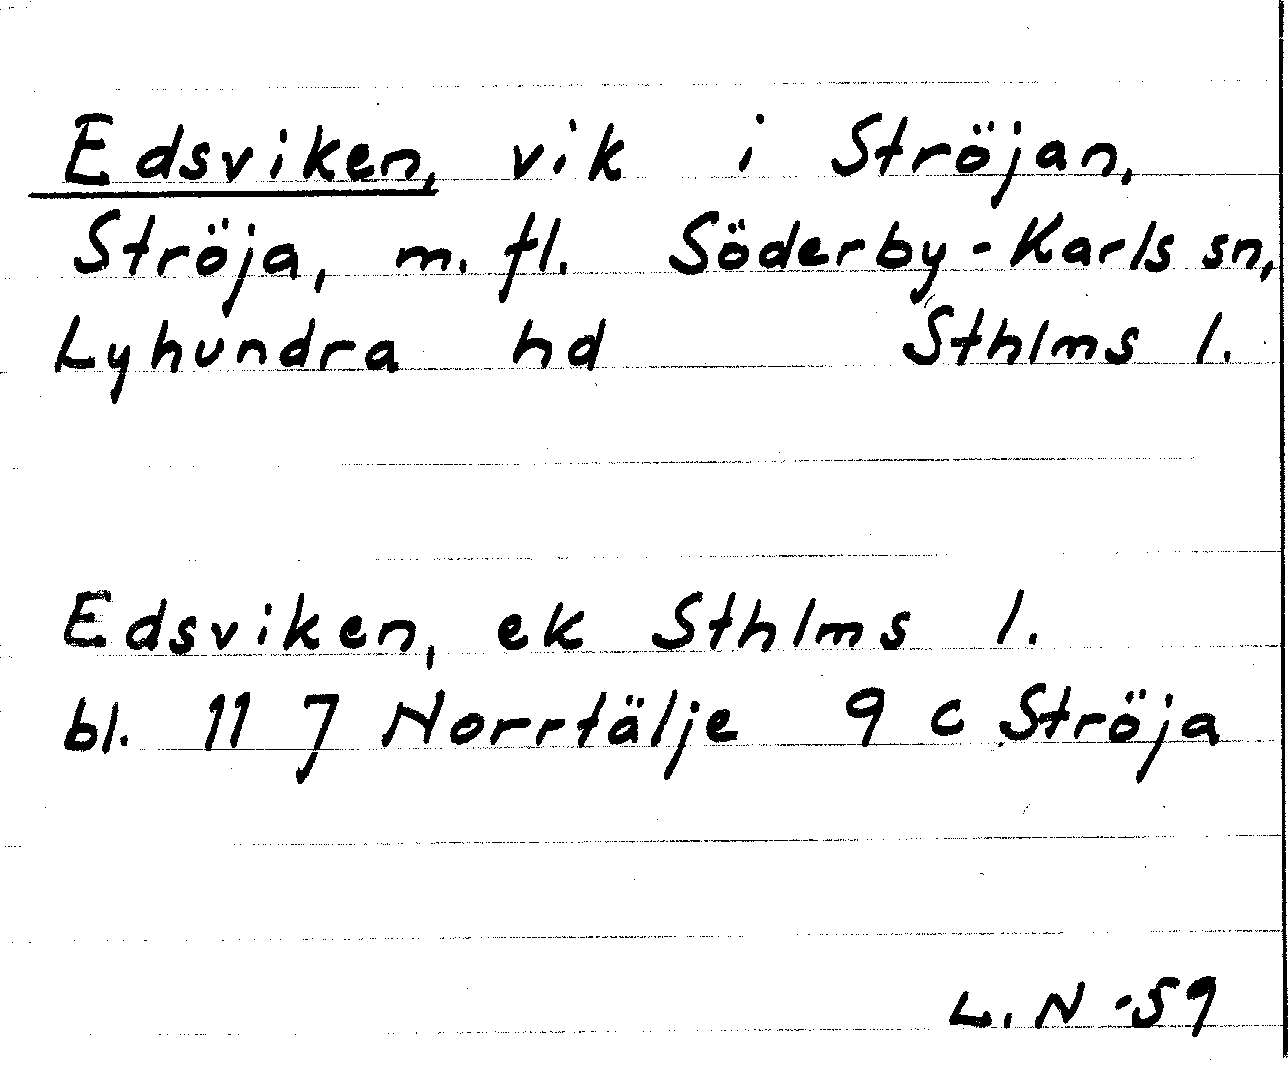 Edsviken, vik i Ströjan,
Ströja, m. fl. Söderby-Karls sn,
Lyhundra hd Sthlms l.
Edsviken, ek Sthlms l.
bl. 11 J Norrtälje 9 c Ströja
L. N -59